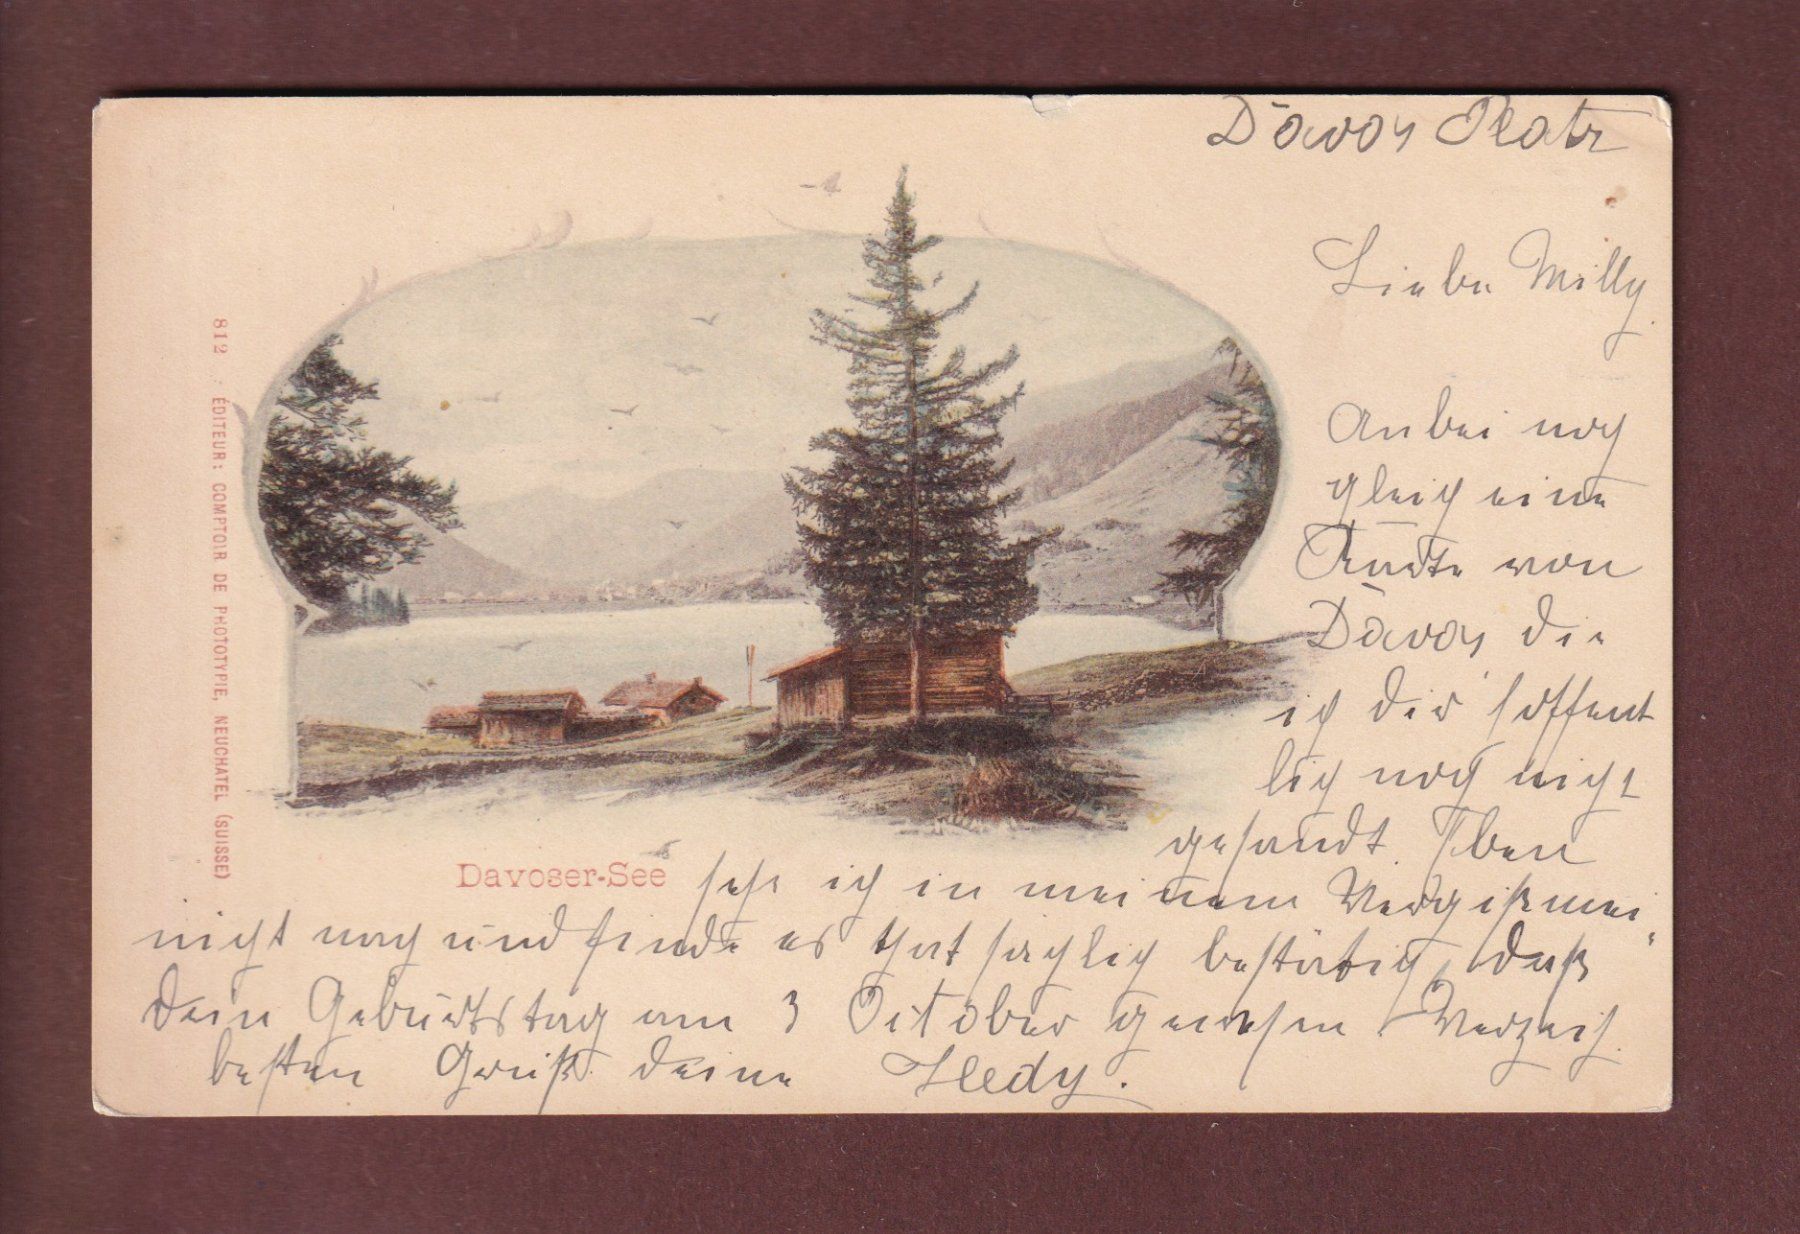 Davos Platz
Liebe Milly.
Anbei noch
gleich eine
Karte von
Davos die
ich dir hoffent
lich noch nicht
gesandt. Eben
Davoser-See
sehe ich in meinem Vergißmei
nicht nach und finde es thatsächlich bestätigt, daß
dein Geburtstag am 3 October gewesen. Verzeih.
besten Gruß deine Hedy.
812 · ÉDITEUR: COMPTOIR DE PHOTOTYPIE, NEUCHATEL (SUISSE)